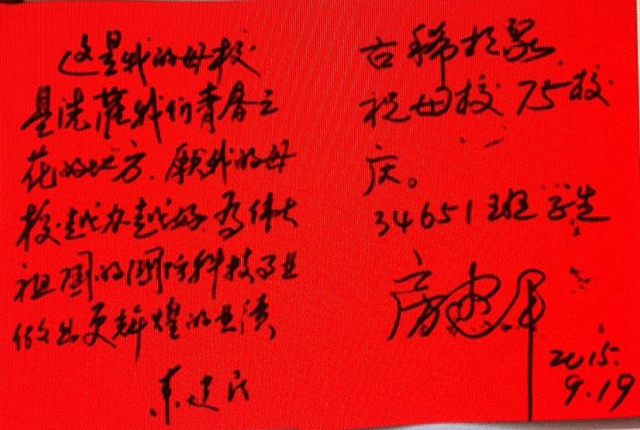 这是我的母校
是浇灌我们青春之
花的地方.愿我的母
校越办越好 为伟大
祖国的国防科技事业
做出更辉煌的业绩
古稀
祝母校75校
庆。
34651班学生
2015.
9.19